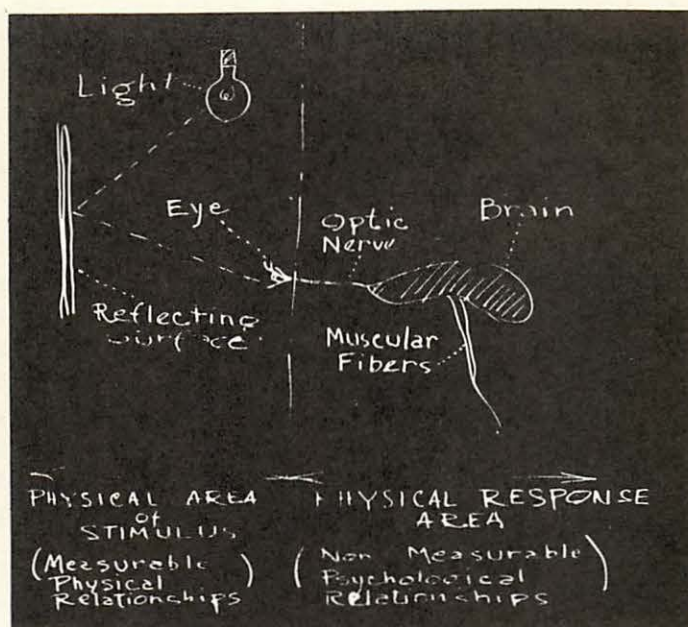 Light
Eye
Optic
Nerve
Brain
Reflecting
Surface
Muscular
Fibers
PHYSICAL AREA
of
STIMULUS
(Measurable
Physical
Relationships)
PHYSICAL RESPONSE
AREA
(Non Measurable
Psychological
Relationships)